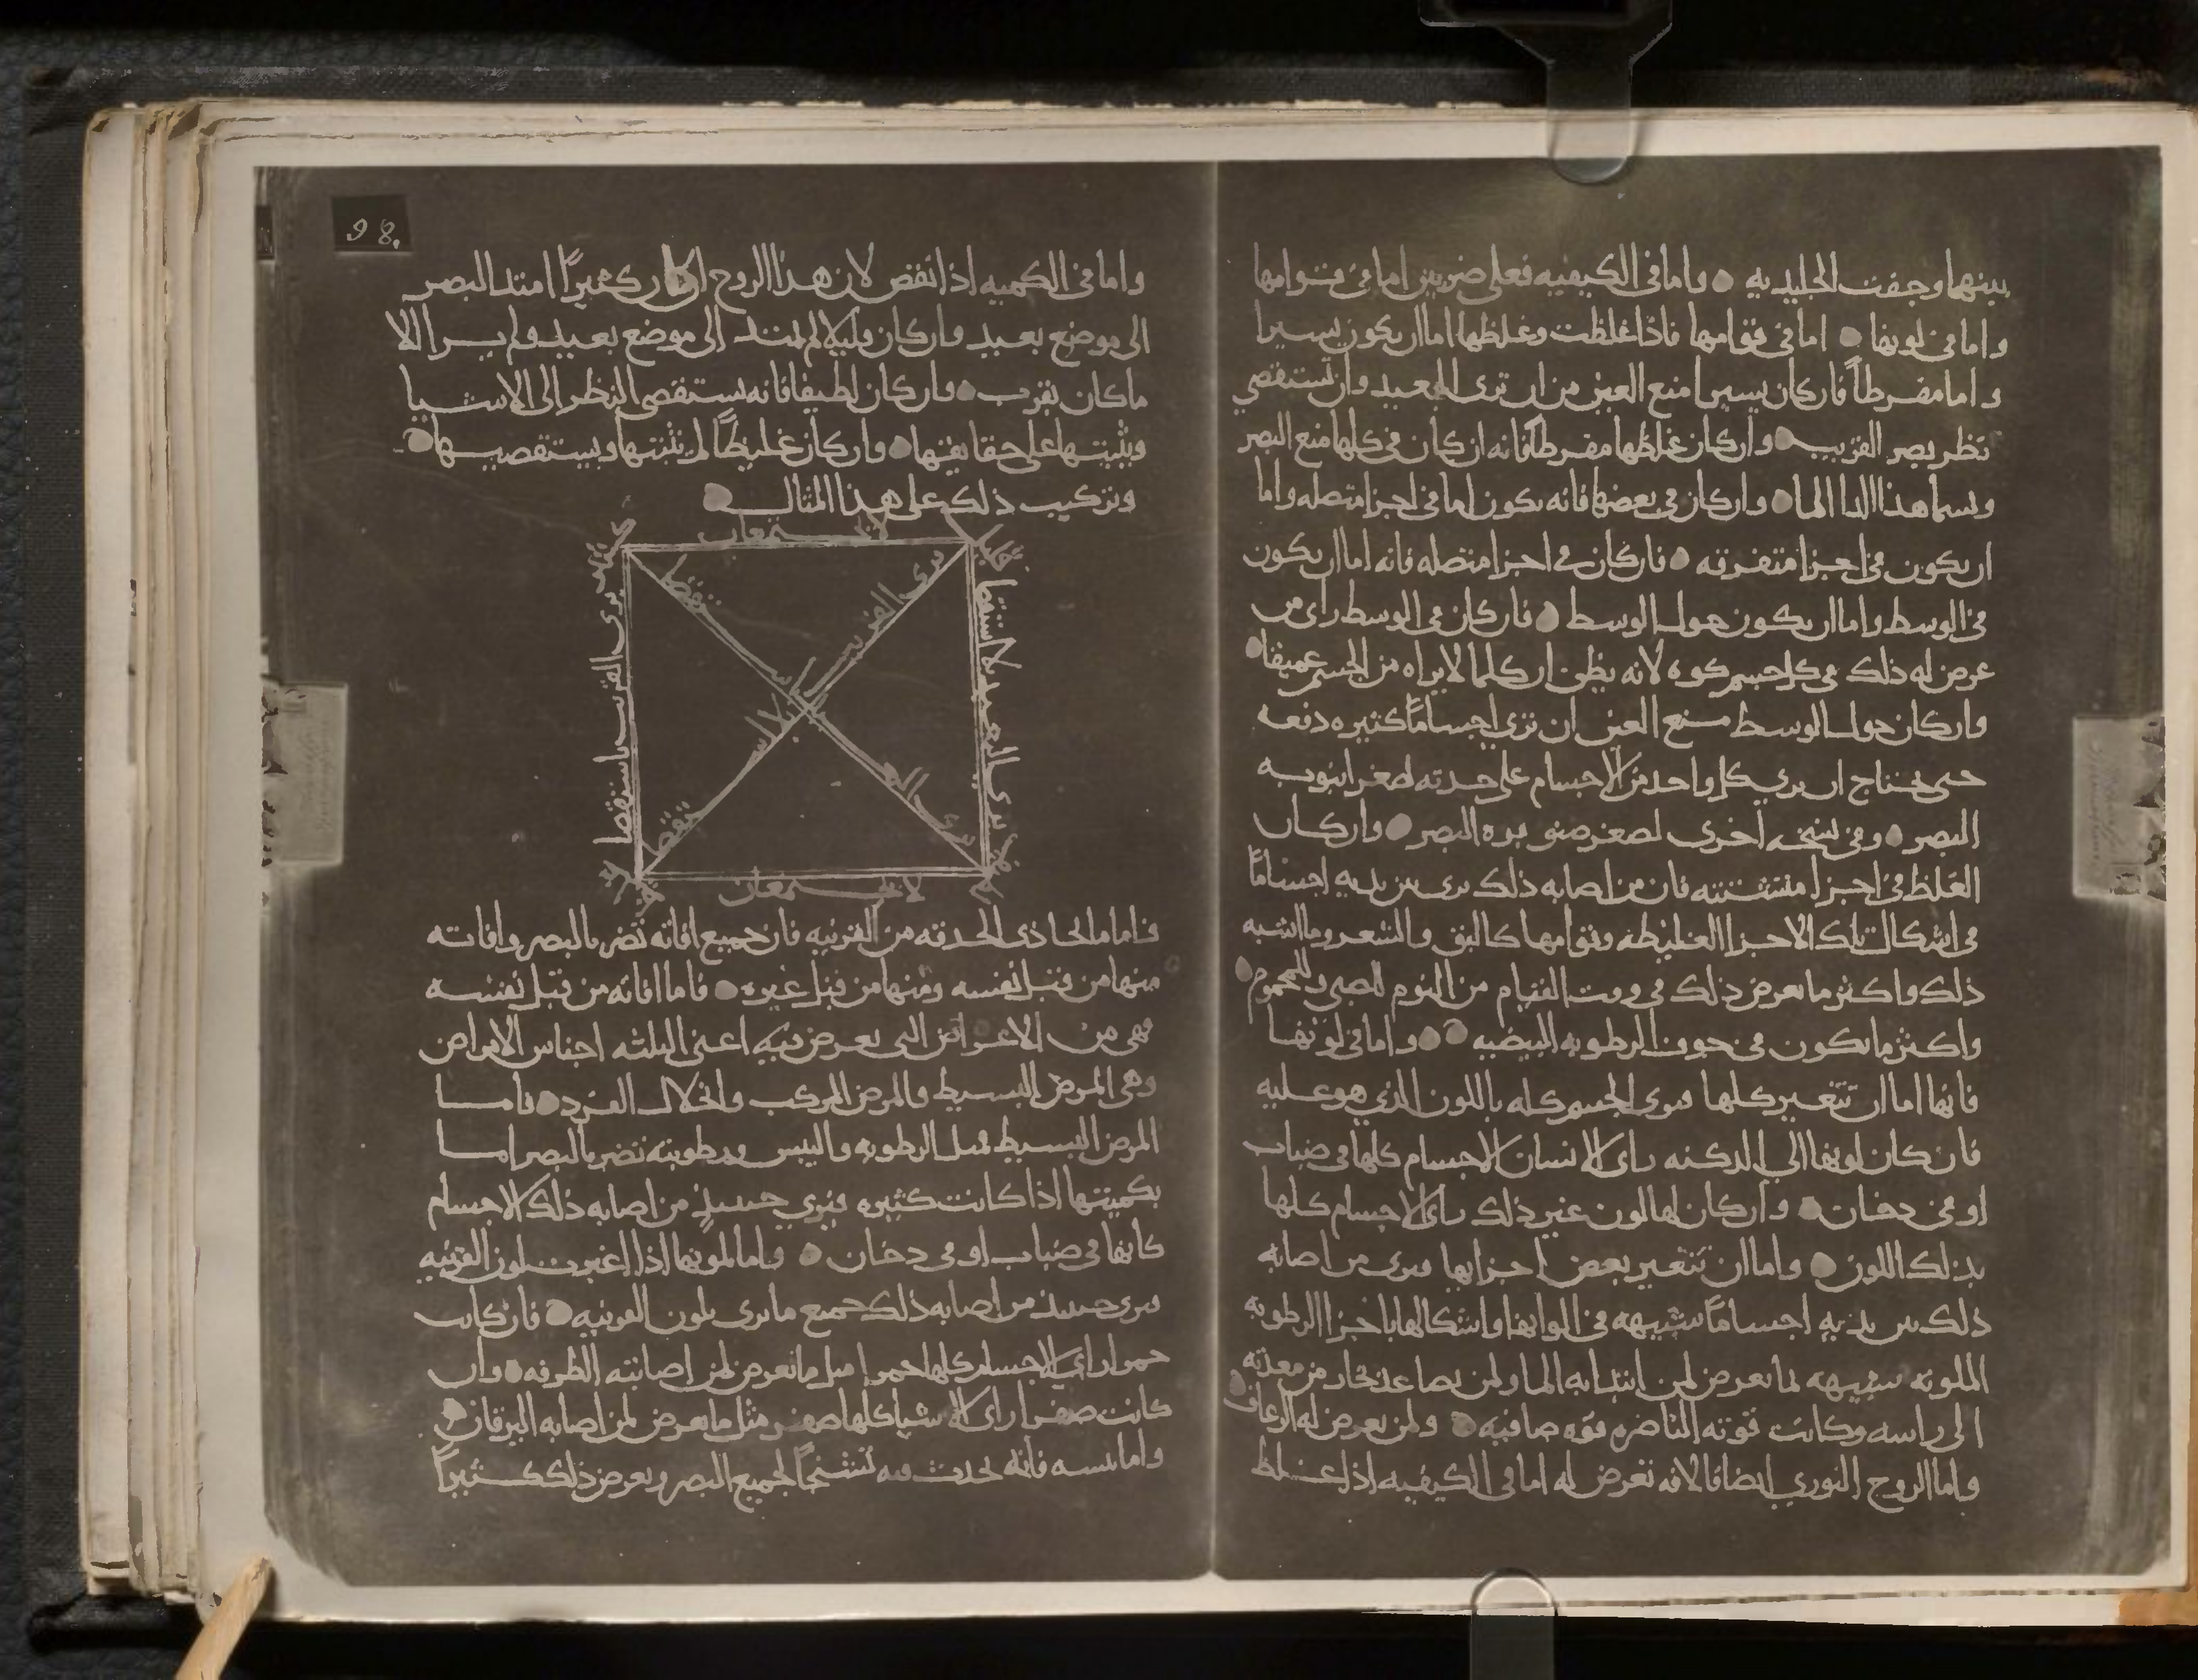 بينها وجفت الجليديه ٥ واما في الكيفيه فعلى ضربين اما في قوامها
واما في لونها ٥ اما في قوامها فاذا غلظت وغلظها اما ان يكون يسيرا
واما مفرطاً فان كان يسيرا منع العين من ان ترى البعيد وان تستقصي
نظر بصر القريب ٥ وان كان غلظها مفرطاً فانه ان كان في كلها منع البصر
ويسما هذا الدا الما ٥ وان كان في بعضها فانه يكون اما في اجزا متصله واما
ان يكون في اجزا متفرقه ٥ فان كان في اجزا متصله فانه اما ان يكون
في الوسط واما ان يكون حول الوسط ٥ فان كان في الوسط راى من
عرض له ذلك في كل جسم كوه لانه يظن ان كلما لا يراه من الجسم عميقا ٥
وان كان حول الوسط منع العين ان ترى اجساماً كثيره دفعه
حتى تحتاج ان يرى كل واحد من الاجسام على حدته لصغر انبوبه
البصر ٥ وفي نسخه اخرى لصغر صنوبره البصر ٥ وان كان
الغلظ في اجزا متشتته فان من اصابه ذلك يرى بين يديه اجساماً
في اشكال تلك الاجزا الغليظه وقوامها كالبق والشعر وما اشبه
ذلك واكثر ما يعرض ذلك في وقت القيام من النوم للصبي والمحموم ٥
واكثر ما يكون في جوف الرطوبه البيضيه ٥ ٥ واما في لونها
فانها اما ان تتغير كلها فيرى الجسم كله باللون الذي هو عليه
فان كان لونها الى الدكنه راى الانسان الاجسام كلها في ضباب
او في دخان ٥ وان كان لها لون غير ذلك راى الاجسام كلها
بذلك اللون ٥ واما ان تتغير بعض اجزايها فيرى من اصابه
ذلك بين يديه اجساماً شبيهه في الوانها واشكالها باجزا الرطوبه
الملونه شبيهه لما يعرض لمن ابتدا به الما ولمن يصاعد بخار من معدته
الى راسه وكانت قوته الناضره قوه صافيه ٥ ولمن يعرض له الرعاف ٥
واما الروح النوري ايضا فالافه تعرض له اما في الكيفيه اذا غلظ
98.
واما في الكميه اذا نقص لان هذا الروح ان كان كثيراً امتد البصر
الى موضع بعيد وان كان قليلا لم يمتد الى موضع بعيد ولم ير الا
ما كان بقرب ٥ وان كان لطيفا فانه يستقصى النظر الى الاشيا
ويثبتها على حقايقها ٥ وان كان غليظاً لم يثبتها ويستقصيها ٥
وتركيب ذلك على هذا المثال ٥
لا يجتمعان
يرى القريب باستقصا
يرى البعيد بلا استقصا
يرى القريب بلا استقصا
يرى البعيد باستقصا
لا يجتمعان
فاما ما يحاذى الحدقه من القرنيه فان جميع افاته تضر بالبصر وافاته
منها من قبل نفسه ومنها من قبل غيره ٥ فاما افاته من قبل نفسه
فهى من الاعراض التى تعرض فيه اعنى الثلثه اجناس الامراض
وهى المرض البسيط والمرض المركب وانحلال الفرد ٥ فاما
المرض البسيط فمثل الرطوبه واليبس ورطوبته تضر بالبصر اما
بكميتها اذا كانت كثيره فيرى حينيذ من اصابه ذلك الاجسام
كانها في ضباب او في دخان ٥ واما لونها اذا اغبرت لون القرنيه
فيرى حينيذ من اصابه ذلك جميع ما يرى بلون القرنيه ٥ فان كانت
حمرا راى الاجسام كلها حمرا مثل ما يعرض لمن اصابته الطرفه ٥ وان
كانت صفرا راى الاشيا كلها صفر مثل ما يعرض لمن اصابه اليرقان ٥
واما يبسه فانه يحدث فيه تشنجاً لجميع البصر ويعرض ذلك كثيراً